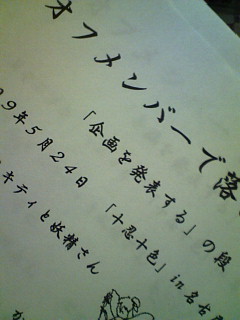 オフメンバーで落
「企画を発表する」の段
9年5月24日 「十忍十色」in名古
キティと妖精さん